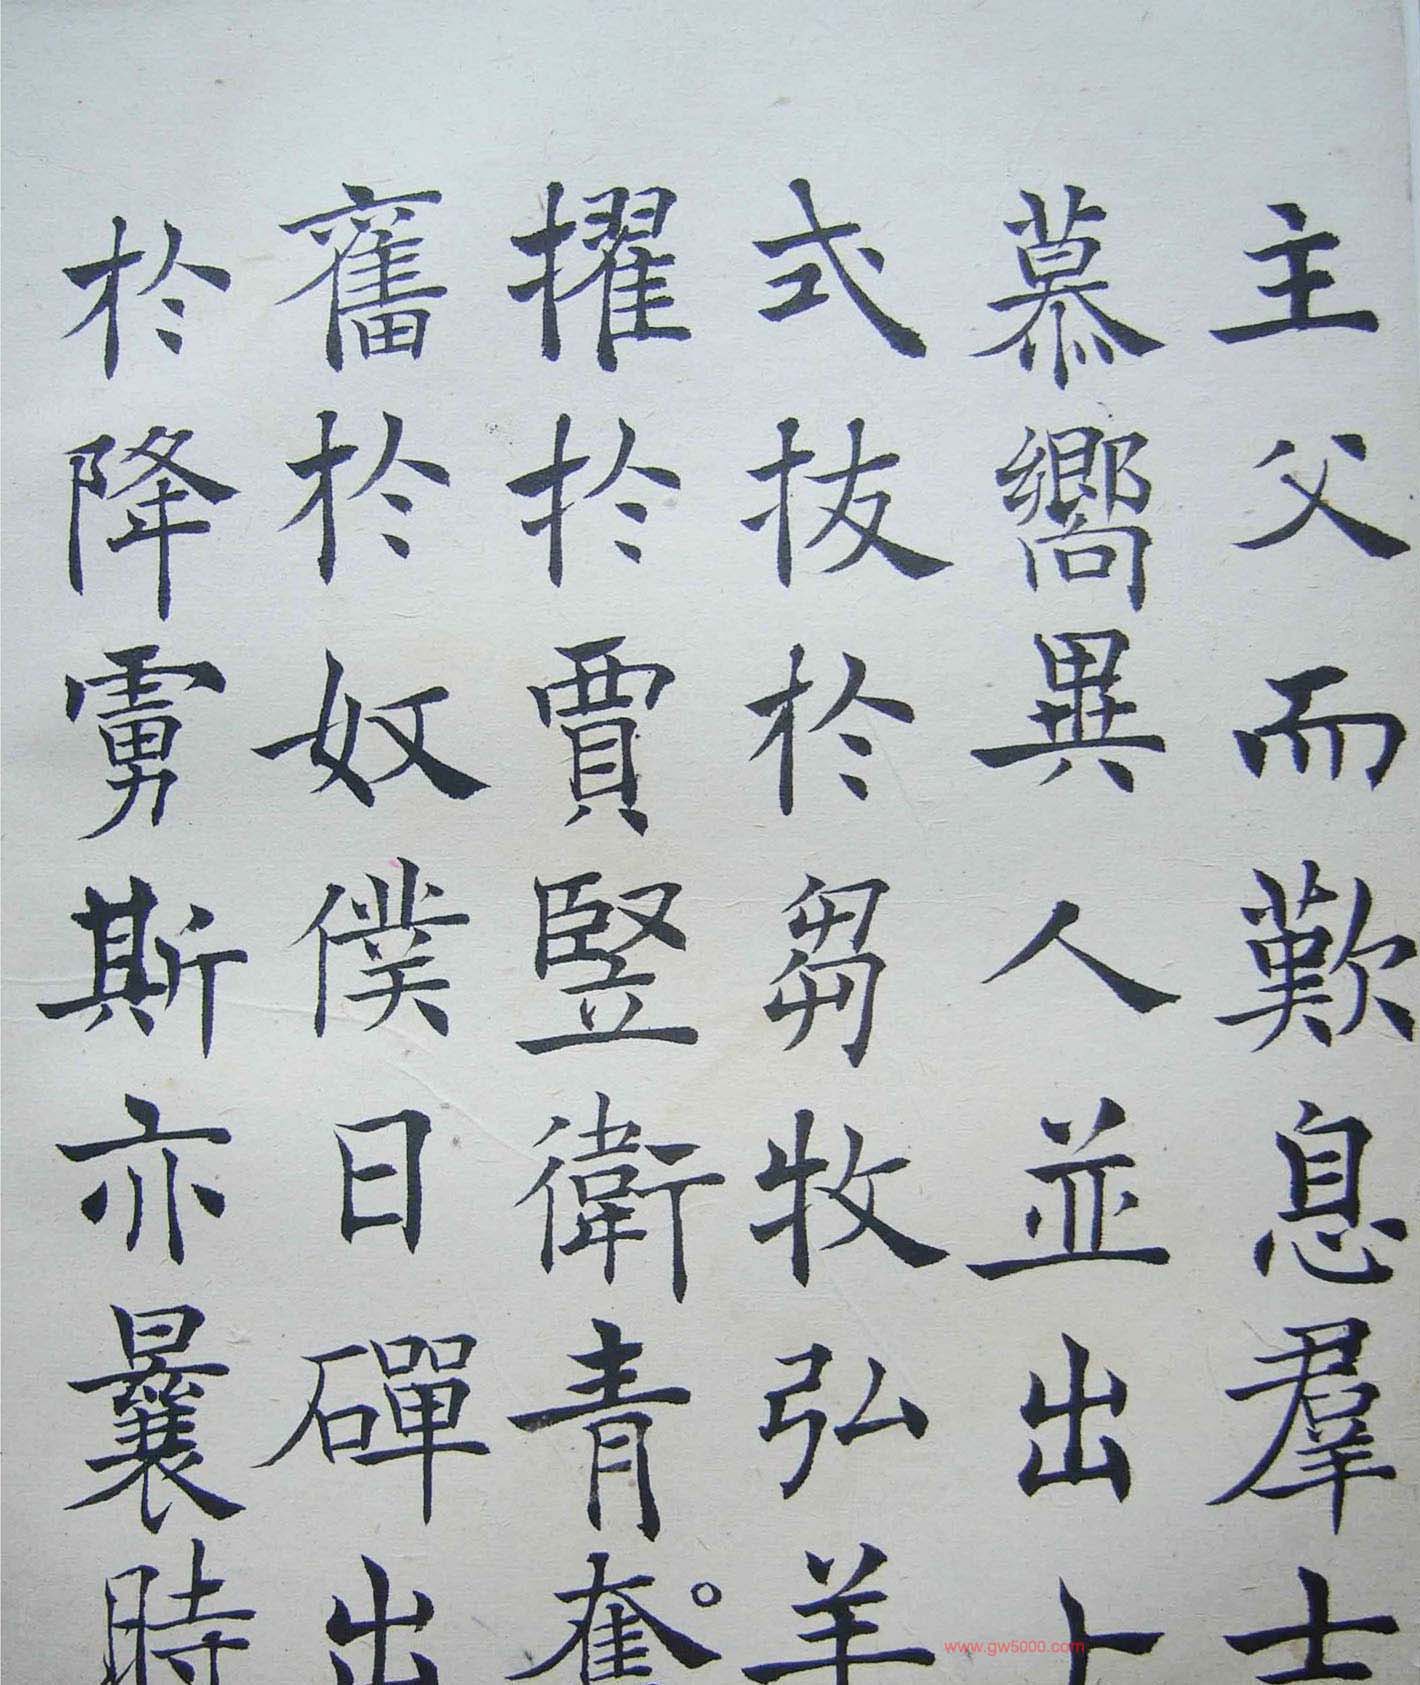 主父而歎息羣士
慕嚮異人並出卜
式拔於芻牧弘羊
擢於賈豎衛青奮
舊於奴僕日磾出
於降虜斯亦曩時
www.gw5000.com